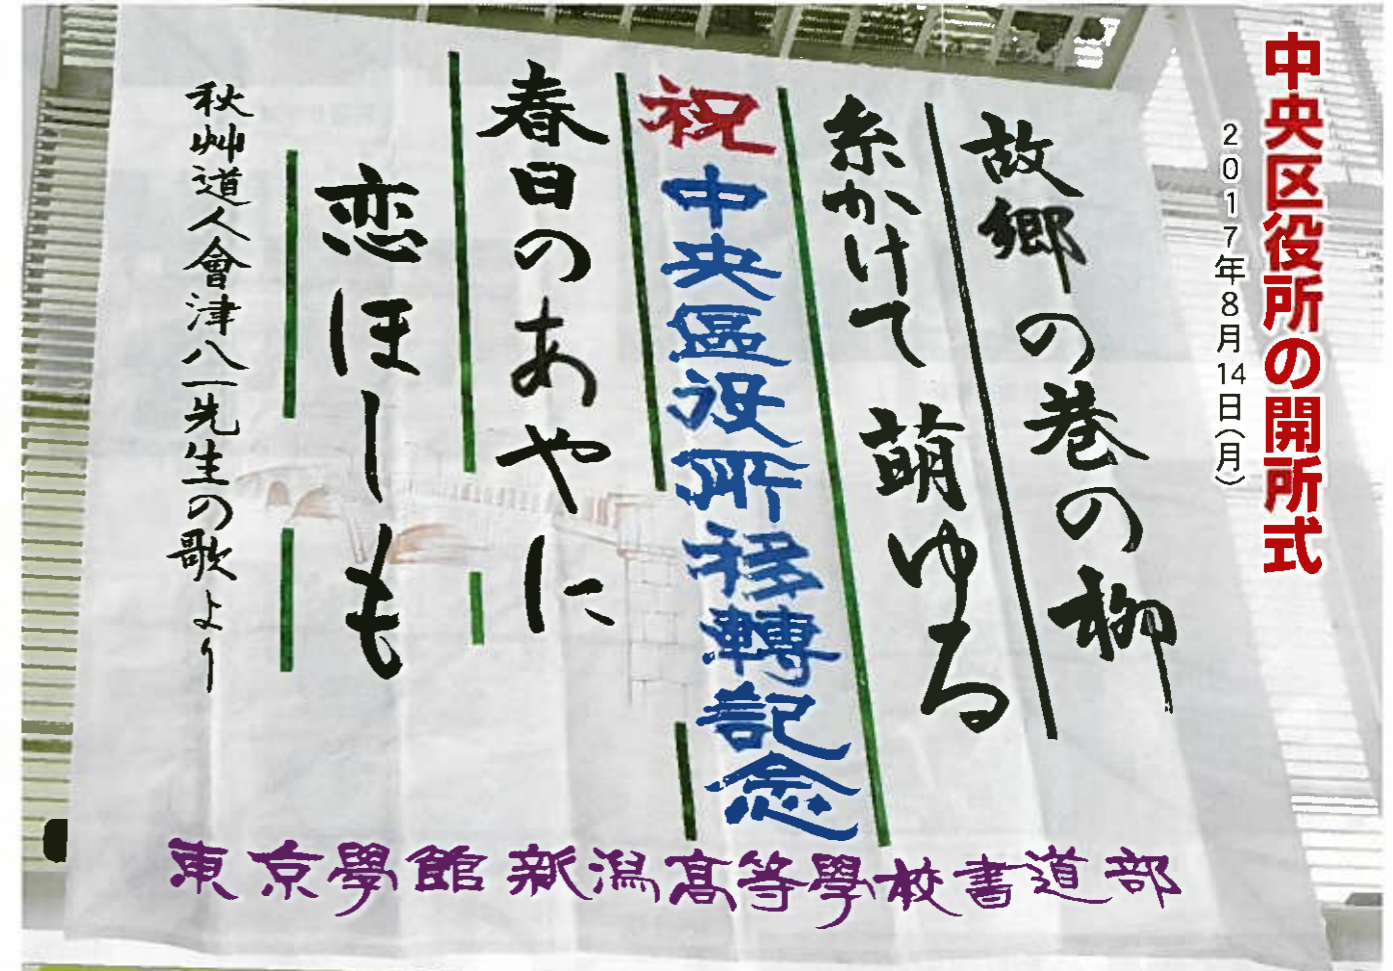 中央区役所の開所式
2017年8月14日(月)
故郷の巷の柳
糸かけて萌ゆる
祝中央區役所移轉記念
春日のあやに
恋ほしも
秋艸道人會津八一先生の歌より
東京學館新潟高等學校書道部